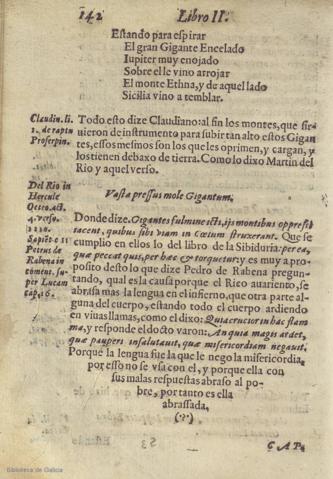 142 Libro II.
Estando para espirar
El gran Gigante Encelado
Iupiter muy enojado
Sobre elle vino arrojar
El monte Ethna, y de aquel lado
Sicilia vino a temblar.
Claudin. li.
1. de raptu
Proserpin.
Todo esto dize Claudiano: al fin los montes, que sir
uieron de instrumento para subir tan alto estos Gigan
tes, essos mesmos son los que les oprimen, y cargan, y
los tienen debaxo de tierra. Como lo dixo Martin del
Rio y aquel verso.
Del Rio in
Hercule
Oeteo. act.
4. verso.
Sapiēt. c 11
Petrus de
Rabena in
cōment. su-
per Lucam
cap. 16.
Vasta pressus mole Gigantum.
Donde dize. Gigantes fulmine icti, ijs montibus oppressi
iacent, quibus sibi viam in Cœlum struxerant. Que se
cumplio en ellos lo del libro de la Sibiduria: per ea,
quæ peccat quis, per hæc & torquetur: y es muy a pro-
posito desto lo que dize Pedro de Rabena pregun-
tando, qual es la causa porque el Rico auariento, se
abrasa mas la lengua en el infierno, que otra parte al-
guna del cuerpo, estando todo el cuerpo ardiendo
en viuas llamas, como el dixo: Quia crucior in hac flam
ma, y responde el docto varon: An quia magis ardet,
quæ pauperi insultauit, quæ misericordiam negauit.
Porque la lengua fue la que le nego la misericordia,
por esso no se vsa con el, y porque ella con
sus malas respuestas abraso al po-
bre, por tanto es ella
abrassada,
(?)
CAP.
Biblioteca de Galicia